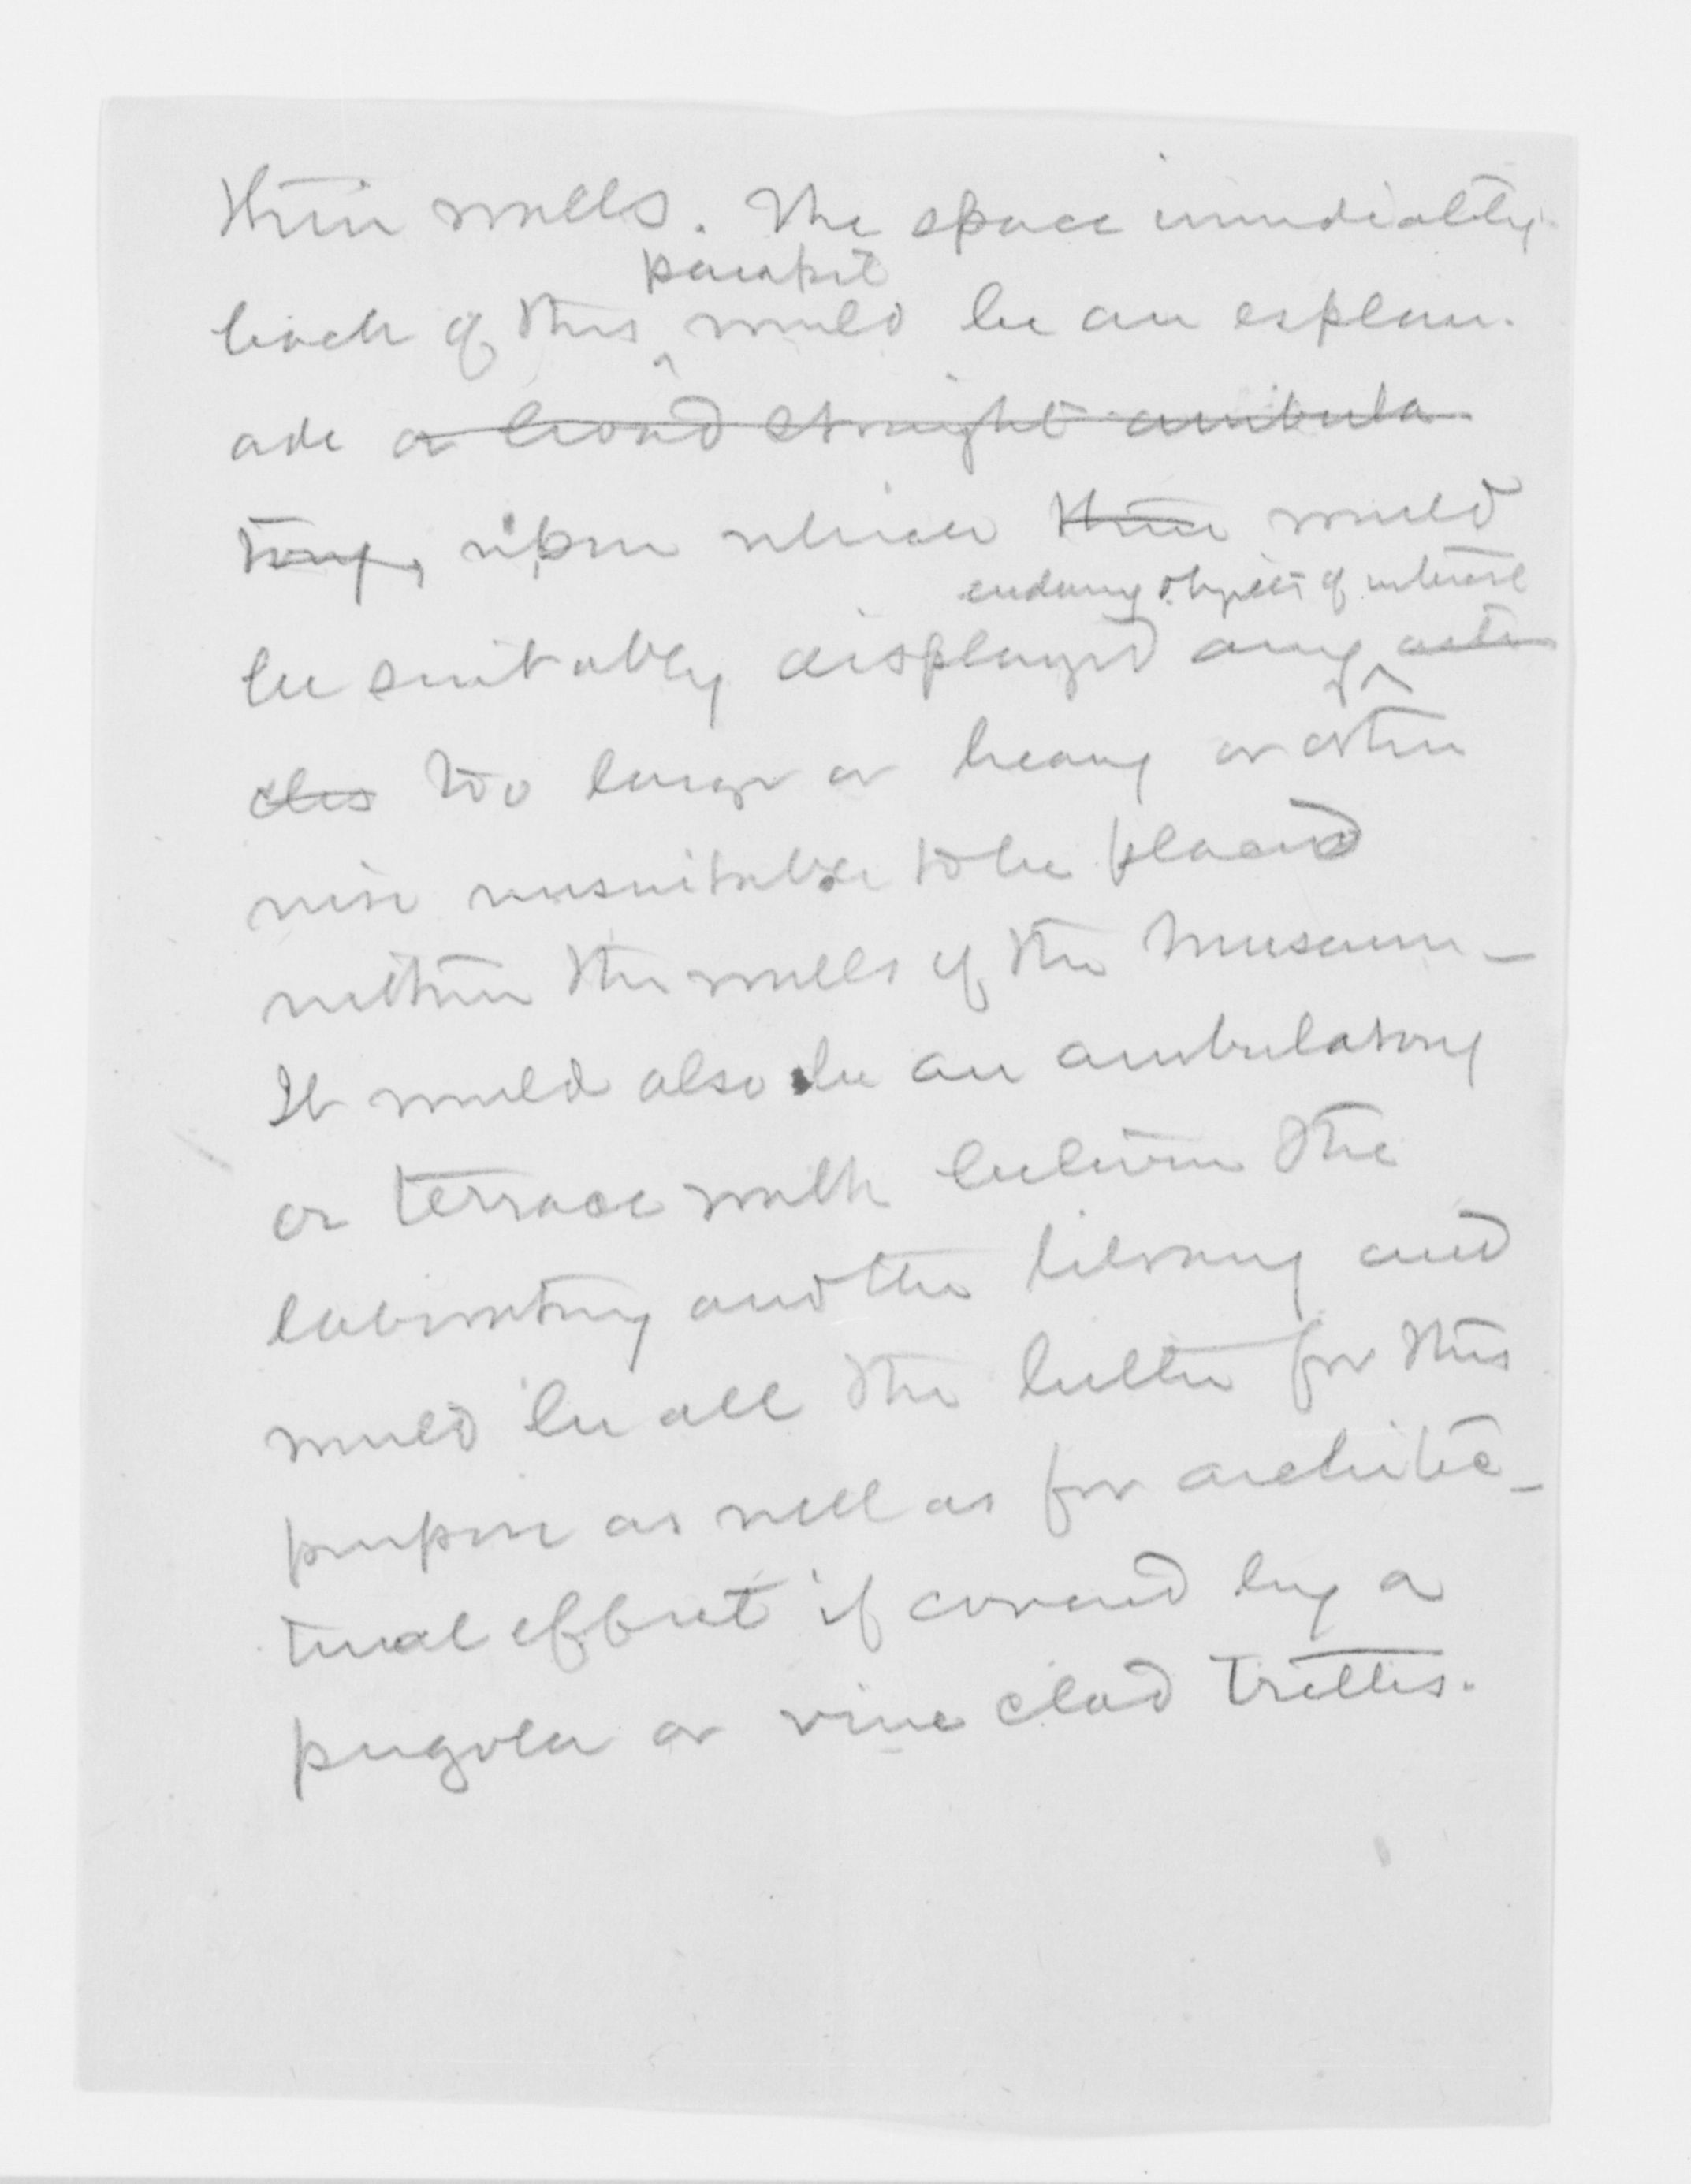 their walls. The space immediately
parapet
back of this ^ would be an esplan-
ade a broad straight ambula
tory, upon which there would
enduring objects of interest
be suitably displayed any ^ arti
cles too large or heavy or other
wise unsuitable to be placed
within the walls of the Museum -
It would also be an ambulatory
or terrace walk between the
laboratory and the library and
would be all the better for this
purpose as well as for architec-
tural effect if covered by a
pergola or vine clad trellis.